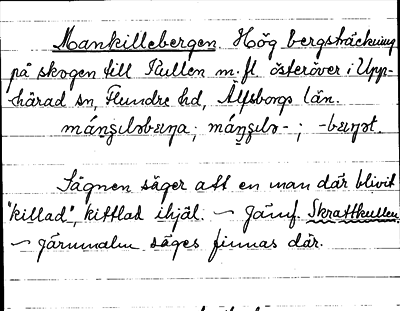 Mankillebergen. Hög bergsträckning
på skogen till Kullen m. fl. österöver i Upp-
härad sn, Flundre hd, Älfsborgs län.
Sägnen säger att en man där blivit
"killad", kittlad ihjäl. – Jämf. Skrattkullen.
– Järnmalm säges finnas där.